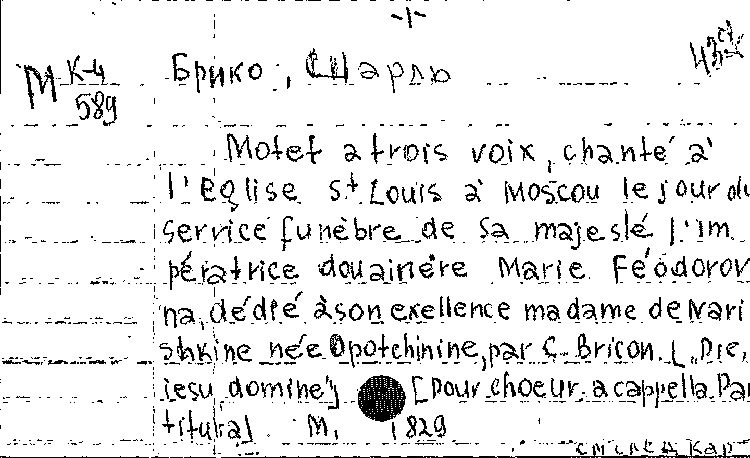 -1-
М К-4
589
Брико, Шарль
Motet a trois voix, chanté à
l'Eglise St Louis à Moscou le jour du
service funèbre de sa majeslé l'im
pératrice douainère Marie Féodorov
na, dédié à son exellence madame de Nari
shkine née Opotchinine, par C. Bricon. [„Pie,
iesu domine"] [pour choeur a cappella. Par
titura] М. 1829
см след кар